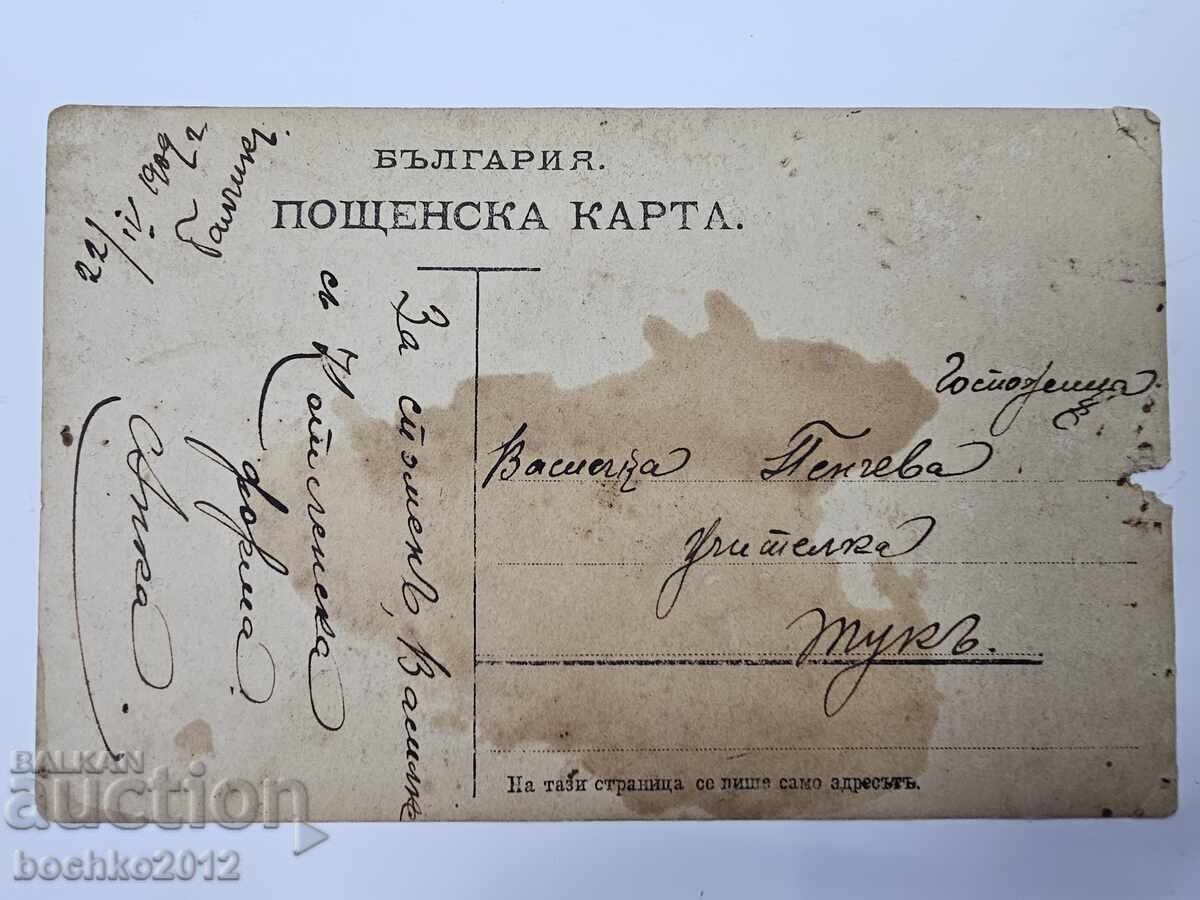 БЪЛГАРИЯ.
ПОЩЕНСКА КАРТА.
22/IV 1909
За спомен, Василке
съ
форма
Анка
Госпожица
Василка Пенчева
Учителка
Тукъ.
На тази страница се пише само адресътъ.
BALKAN
auction
bochko2012